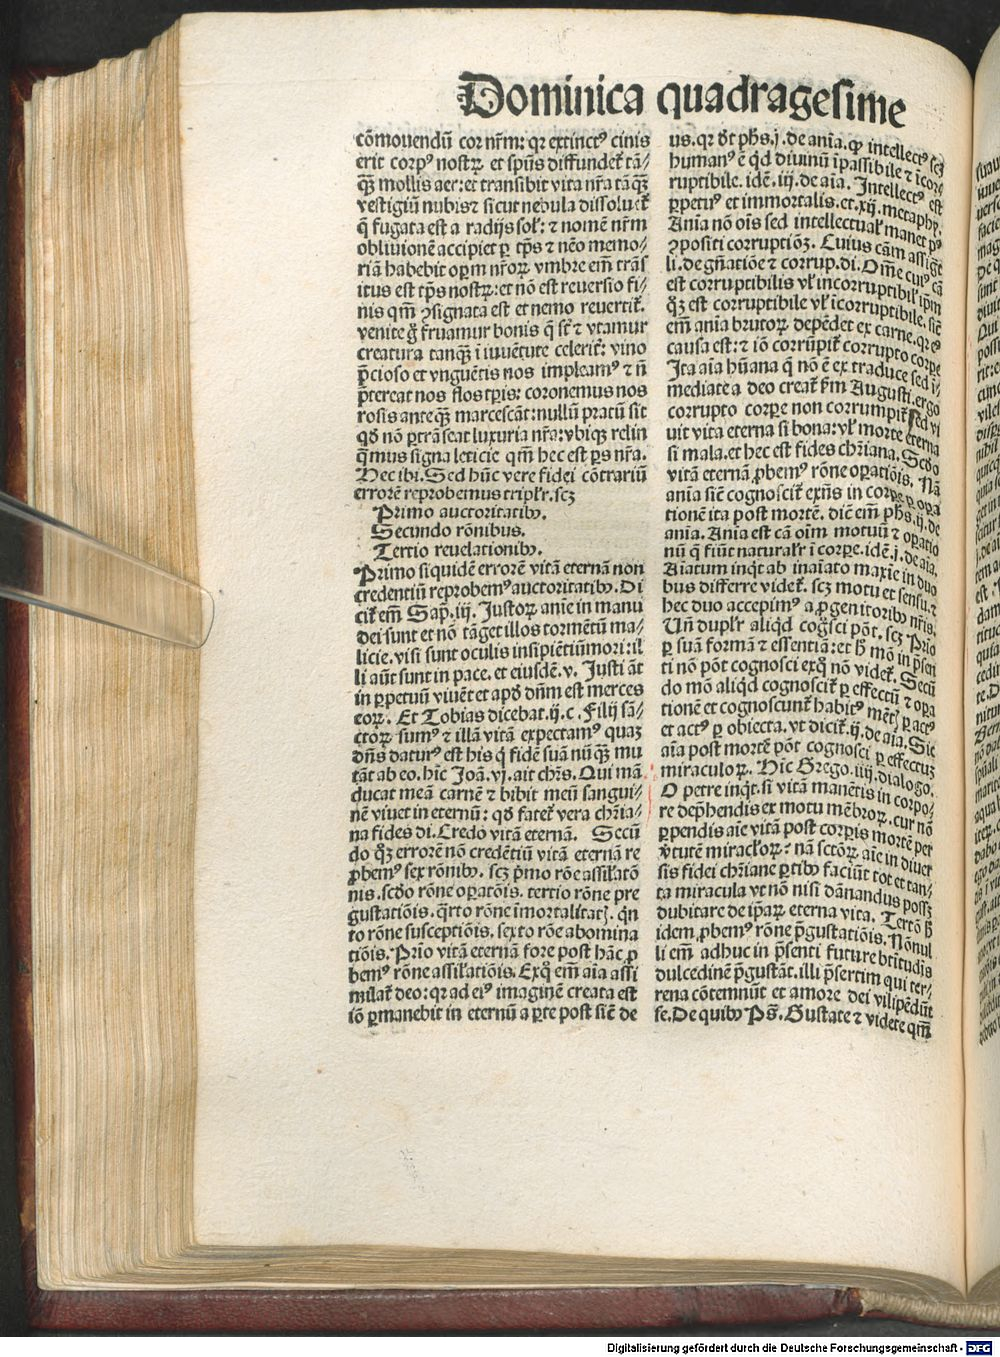 Dominica quadragesime
cōmouendū cor nr̄m: qꝛ extinctꝰ cinis
erit corpꝰ nostrꝝ et spūs diffundet̄ tā⸗
qꝫ mollis aer: et transibit vita nr̄a tāqꝫ
vestigiū nubis ⁊ sicut nebula dissoluet̄
q̄ fugata est a radijs sol̕: ⁊ nomē nr̄m
obliuionē accipiet ꝑ tp̄s ⁊ nēo memo⸗
riā habebit oꝑm nr̄oꝝ vmbre em̄ trās
itus est tp̄s nostrꝝ: et nō est reuersio fi⸗
nis qm̄ ꝯsignata est et nemo reuertit̄.
venite g̊ fruamur bonis q̄ st̄ ⁊ vtamur
creatura tanqꝫ ī iuuētute celerit̄: vino
p̄cioso et vnguētis nos impleamꝰ ⁊ n̄
p̄tereat nos flos tꝑis: coronemus nos
rosis anteqꝫ marcescāt: nullū pratū sit
qd̄ nō ꝑtrāseat luxuria nr̄a: vbiqꝫ relin
q̄mus signa leticie qm̄ hec est ꝑs nr̄a.
Hec ibi. Sed hūc vere fidei cōtrariū
errorē reprobemus tripl̕r. scꝫ
Primo auctoritatibꝰ.
Secundo rōnibus.
Tertio reuelationibꝰ.
Primo siquidē errorē vitā eternā non
credentiū reprobemꝰ auctoritatibꝰ. Di
cit̄ em̄ Sap̄. iij. Justoꝝ aīe in manu
dei sunt et nō tāget illos tormētū ma⸗
licie. visi sunt oculis insipiētiū mori: il⸗
li aūt sunt in pace. et eiusdē. v. Justi āt
in ꝑpetuū viuēt et apd̄ dn̄m est merces
eoꝝ. Et Tobias dicebat. ij. c. Filij sā⸗
ctoꝝ sumꝰ ⁊ illā vitā expectamꝰ quaꝫ
dn̄s daturꝰ est his q̄ fidē suā nūqꝫ mu
tāt ab eo. hīc Joā. vj. ait chr̄s. Qui mā
ducat meā carnē ⁊ bibit meū sangui⸗
nē viuet in eternū: qd̄ fatet̄ vera chr̄ia⸗
na fides di. Credo vitā eternā. Secū
do qꝫ errorē nō credētiū vitā eternā re
ꝓbemꝰ sex rōnibꝰ. scꝫ p̄mo rōe assil̕atō
nis. scd̄o rōne oꝑatōis. tertio rōne pre
gustatiōis. q̄rto rōne īmortalitatꝭ. qn̄
to rōne susceptiōis. sexto rōe abomina
tiōis. Prīo vitā eternā fore post hāc ꝓ
bemꝰ rōne assil̕atiōis. Exq̊ em̄ aīa assi
milat̄ deo: qꝛ ad eiꝰ imaginē creata est
iō ꝑmanebit in eternū a ꝑte post sicē de
us. qꝛ d̄t ph̄s. j. de aīa. ꝙ intellectꝰ scꝫ
humanꝰ ē qd̄ diuinū īpassibile ⁊ īcor⸗
ruptibile. idē. iij. de aīa. Intellectꝰ est
ꝑpetuꝰ et immortalis. et. xij. metaphy.
Anīa nō oīs sed intellectual̕ manet pꝰ
ꝯpositi corruptiōꝫ. Cuius cām assigt̄
li. de gn̄atiōe ⁊ corrup. di. Om̄e cuiꝰ cā
est corruptibilis vl̕ incorruptibil̕ ip̄m
qꝫ est corruptibile vl̕ īcorruptibile. sicē
em̄ anīa brutoꝝ depēdet ex carne. qꝛ eꝰ
causa est: ⁊ iō corrūpit̄ corrupto corꝑe
Ita aīa hūana q̄ nō ē ex traduce sed ī⸗
mediate a deo creat̄ ẜm Augusti. ergo
corrupto corꝑe non corrumpit̄. Sed vi
uit vita eterna si bona: vl̕ morte eterna
si mala. et hec est fides chr̄iana. Scd̄o
vitā eternā ꝓbemꝰ rōne oꝑatiōis. Nā
anīa sicē cognoscit̄ exn̄s in corꝑe ꝑ oꝑa
tionē ita post mortē. dicē em̄ ph̄s. ij. de
anīa. Anīa est cā oīm motuū ⁊ oꝑatio
nū q̄ fiūt natural̕r ī corꝑe. idē. j. de aīa.
Aīatum inq̄t ab inaīato maxīe in duo
bus differre videt̄. scꝫ motu et sensu. ⁊
hec duo accepimꝰ a ꝓgenitoribꝰ nr̄is.
Un̄ dupl̕r aliqd̄ cog̊sci pōt. scꝫ Prīo
ꝑ suā formā ⁊ essentiā: et hͦ mō in p̄sen
ti nō pōt cognosci exq̊ nō videt̄. Secū
do mō aliqd̄ cognoscit̄ ꝑ effectū ⁊ oꝑa
tionē et cognoscunt̄ habitꝰ mētꝭ ꝑ actꝰ
et actꝰ ꝑ obiecta. vt dicit̄. ij. de aīa. Sic
aīa post mortē pōt cognosci ꝑ effectus
miraculoꝝ. Hīc Grego. iiij. dialogo.
O petre inq̄t. si vitā manētis in corpo⸗
re dep̄hendis ex motu mēbroꝝ. cur nō
ꝑpendis aīe vitā post corꝑis mortē per
v̄tutē miracl̕oꝝ: nā sctōꝝ aīe in diuer
sis fidei chr̄iane ꝑtibꝰ faciūt tot et tan⸗
ta miracula vt nō nisi dānandus possꝫ
dubitare de ip̄aꝝ eterna vita. Tertō hͦ
idem ꝓbemꝰ rōne p̄gustatiōis. Nōnul
li em̄ adhuc in p̄senti future btītudis
dulcedinē p̄gustāt. illi p̄sertim qui ter⸗
rena cōtemnūt et amore dei vilipēdūt
se. De quibꝰ Ps̄. Gustate ⁊ videte qm̄
Digitalisierung gefördert durch die Deutsche Forschungsgemeinschaft - DFG